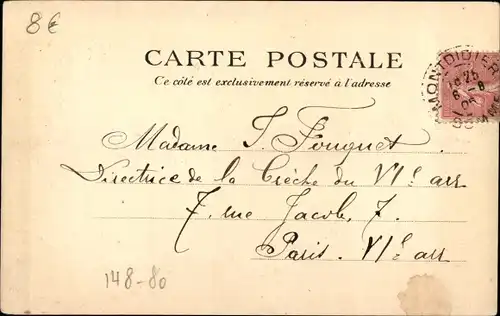 8€
CARTE POSTALE
Ce côté est exclusivement réservé à l'adresse
MONTDIDIER
18 25
6 - 8
05
SOMME
Madame J. Fouquet
Directrice de la Crèche du VIe arr
7, rue Jacob, 7.
Paris. VIe arr
148-80